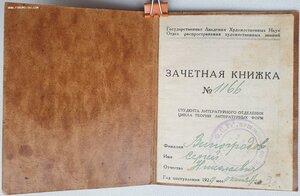 Государственная Академия Художественных Наук
Отдел распространения художественных знаний
ЗАЧЕТНАЯ КНИЖКА
№ 1166
СТУДЕНТА ЛИТЕРАТУРНОГО ОТДЕЛЕНИЯ
ЦИКЛА ТЕОРИИ ЛИТЕРАТУРНЫХ ФОРМ
Фамилия Виноградов
Имя Сергей
Отчество Николаевич
Год поступления 192